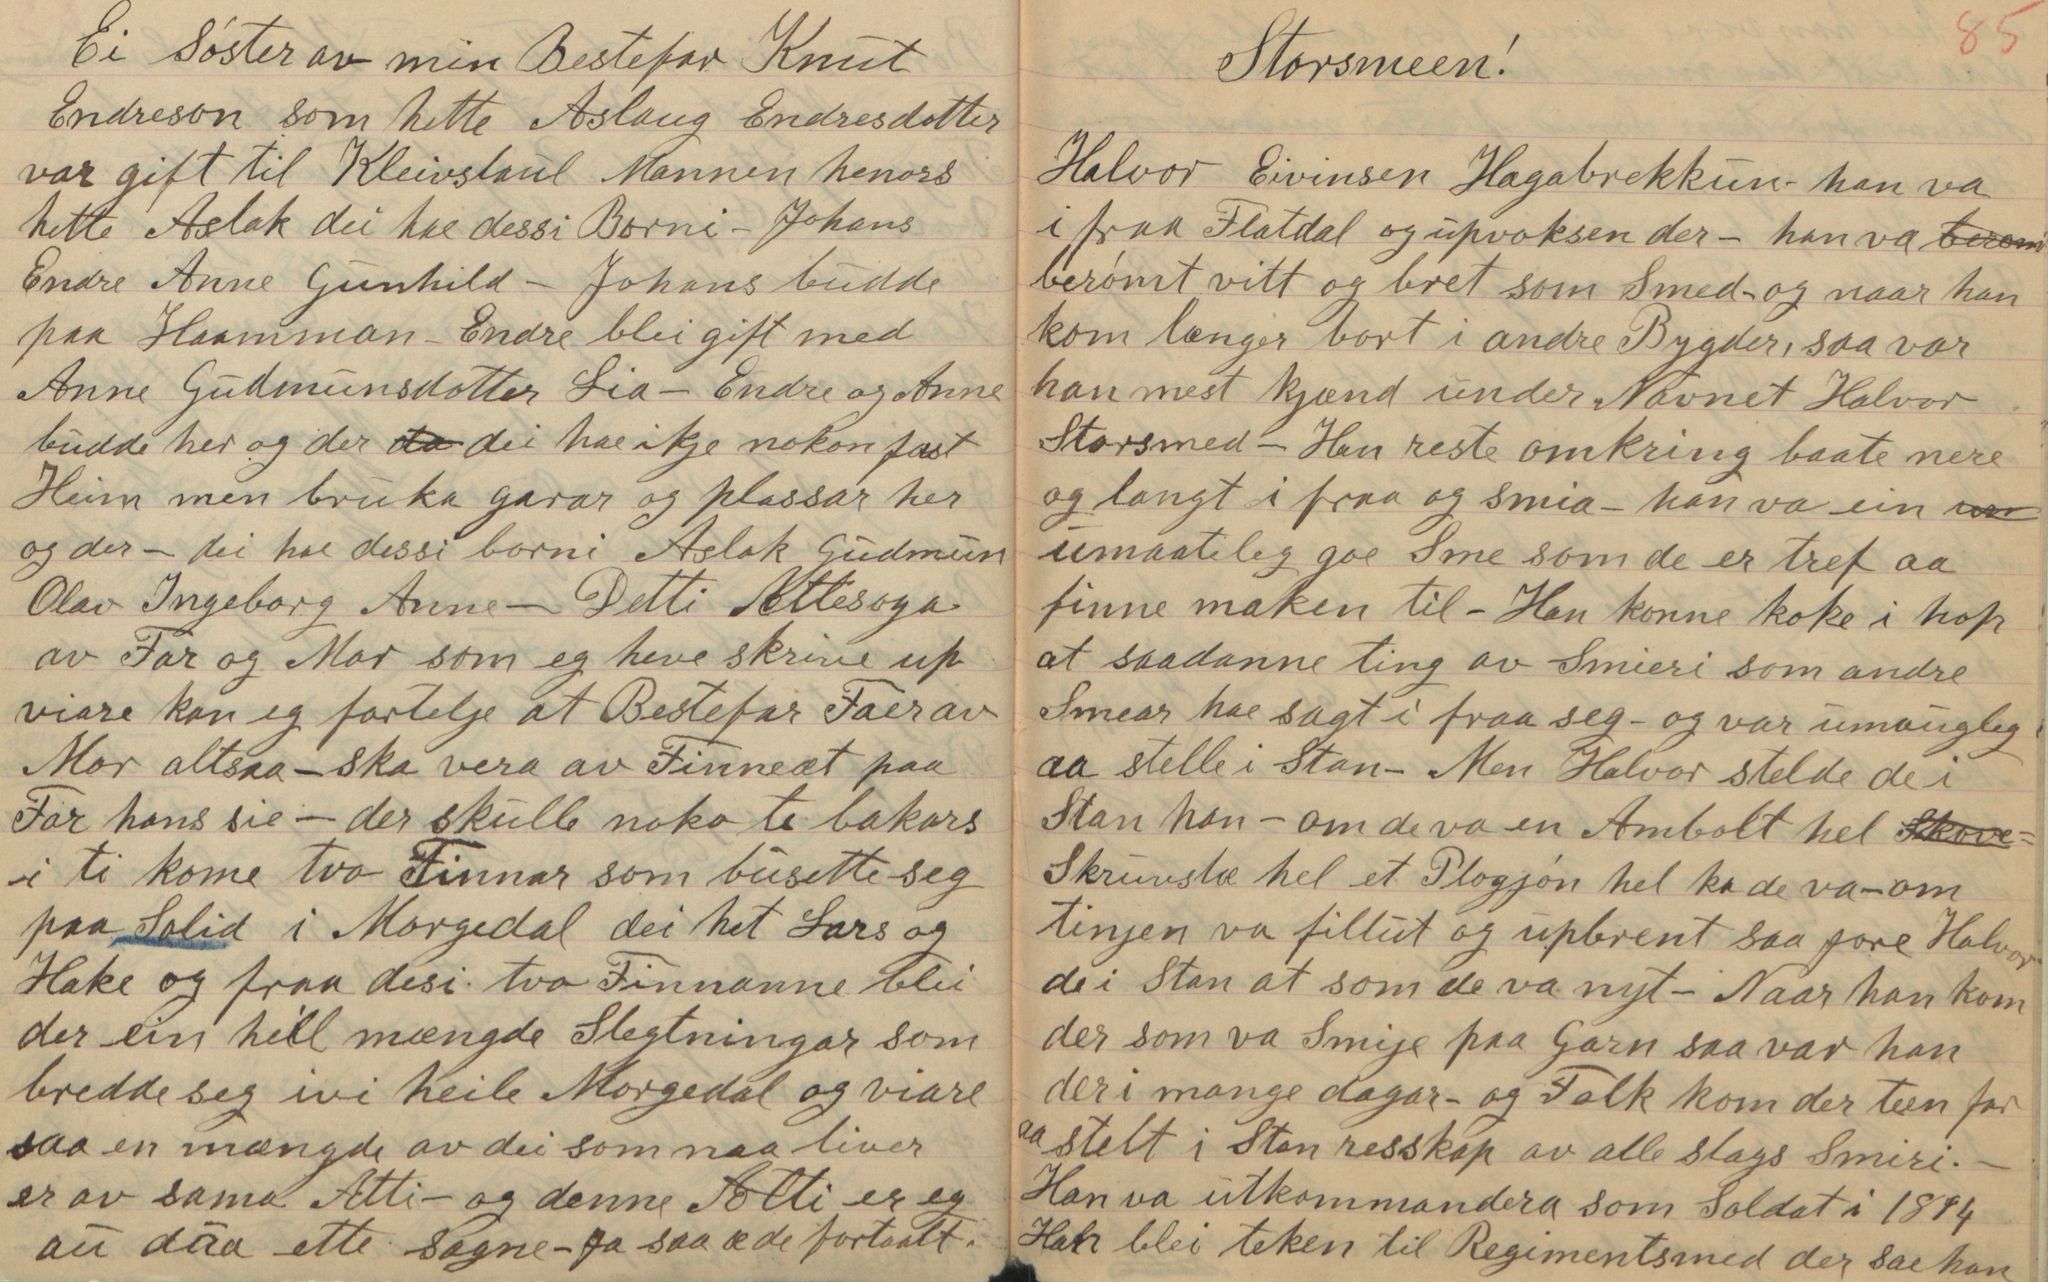 Ei Söster av min Bestefar Knut
Endreson som hette Aslaug Endresdotter
var gift til Kleivstaul Mannen henors
hette Aslak dei hae dessi Borni - Johans
Endre Anne Gunhild - Johans budde
paa Haamman - Endre blei gift med
Anne Gudmunsdotter Lia - Endre og Anne
budde her og der da dei hae ikje nokon fast
Heim men bruka garar og plassar her
og der - dei hae dessi borni Aslak Gudmun
Olav Ingeborg Anne - Detti Ættesoga
av Far og Mor som eg heve skrive up
viare kan eg fortelje at Bestefar Faer av
Mor altsaa - ska vera av Finneæt paa
Far hans sie - der skulle noko te bakars
i ti kome tvo Finnar som busette seg
paa Solid i Morgedal dei het Lars og
Hake og fraa desi tvo Finnanne blei
der ein heil mængde Slegtningar som
bredde seg ivi heile Morgedal og viare
saa en mængde av dei som naa liver
er av sama Ætti - og denne Ætti er eg
au dåa ette Sagne - ja saa æ de fortaalt.
85
Storsmeen!
Halvor Eivinsen Hagabrekkun - han va
i fraa Flatdal og upvoksen der - han va beröm
berömt vitt og bret som Smed - og naar han
kom længer bort i andre Bygder, saa var
han mest kjænd under Navnet Halvor
Storsmed - Han reste omkring baate nere
og langt i fraa og smia - han va ein um
umaateleg goe Sme som de er tref aa
finne maken til - Han konne koke i hop
at saadanne ting av Smieri som andre
Smear hae sagt i fraa seg - og var umaugleg
aa stelle i Stan - Men Halvor stelde de i
Stan han - om de va en Ambolt hel Skove=
Skruvstæ hel et Plogjön hel ka de va - om
tingen va fillut og upbrent saa gore Halvor
de i Stan at som de va nyt - Naar han kom
der som va Smije paa Garn saa var han
der i mange dagar - og Folk kom der teen for
aa stelt i Stan resskap av alle slags Smiri. -
Han va utkommandera som Soldat i 1814
Han blei teken til Regimentsmed der sae han